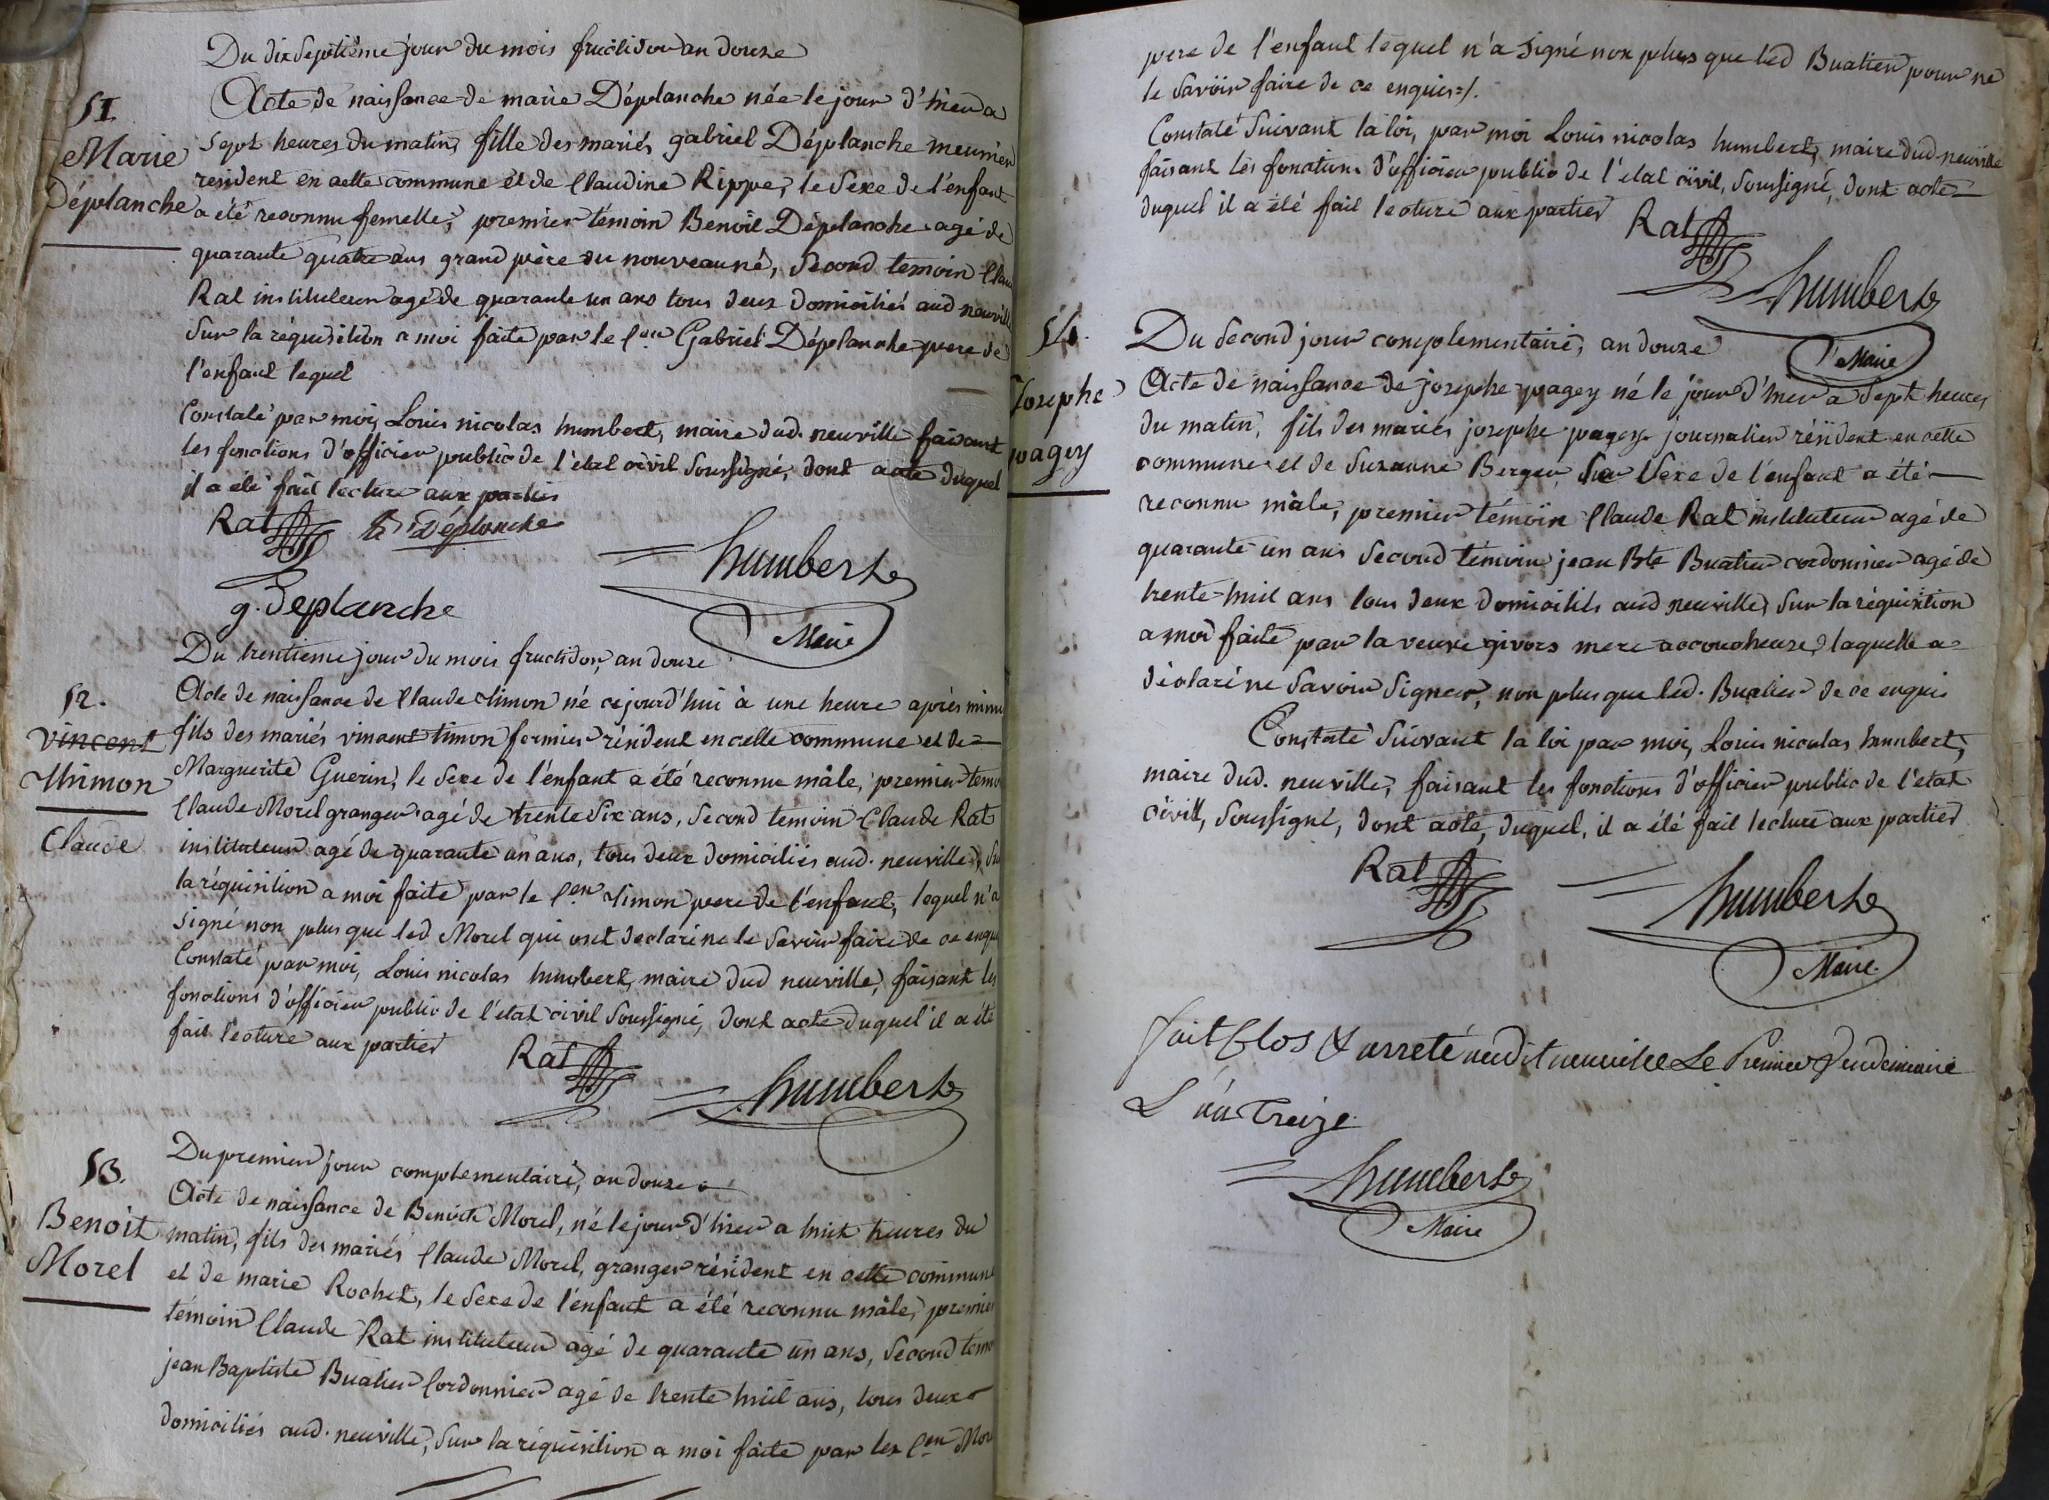 Du dixseptième jour du mois fructidor an douze
51.
Marie
Déplanche
Acte de naissance de marie Déplanche née le jour d'hier a
sept heures du matin, fille des mariés gabriel Déplanche meunier
résident en cette commune et de Claudine Rippe, le sexe de l'enfant
a été reconnu femelle, premier témoin Benoit Déplanche agé de
quarante quatre ans grand père du nouveau né, second temoin Clau
Rat instituteur agé de quarante un ans tous deux domiciliés aud neuville
Sur la réquisition a moi faite par le Cen Gabriel Déplanche pere de
l'enfant lequel
Constaté par moi, Louis nicolas humbert, maire dud. neuville faisant
les fonctions d'officier public de l'état civil soussigné, dont acte duquel
il a été fait lecture aux parties
Rat Déplanche
humbert
g. Deplanche
Maire
Du trentieme jour du mois fructidor, an douze
52.
Vincent
Thimon
Claude
Acte de naissance de Claude timon né cejourd'hui à une heure après minu
fils des mariés vincent timon fermier résident en celle commune et de
Marguerite Guerin, le sexe de l'enfant a été reconnu mâle, premier temo
Claude Morel granger agé de trente six ans, second temoin Claude Rat
instituteur agé de quarante un ans, tous deux domiciliés aud. neuville, su
la réquisition a moi faite par le Cen timon pere de l'enfant, lequel n'a
signé non plus que led Morel qui ont declaré ne le savoir faire de ce enqu
Constaté par moi, Louis nicolas humbert, maire dud neuville, faisant les
fonctions d'officier public de l'état civil soussigné, dont acte duquel il a été
fait lecture aux parties
Rat
humbert
53.
Benoit
Morel
Du premier jour complementaire, an douze
Acte de naissance de Benoit Morel, né le jour d'hier a huit heures du
matin, fils des mariés Claude Morel, granger résident en cette commune
et de marie Rochet, le sexe de l'enfant a été reconnu mâle, premier
témoin Claude Rat instituteur agé de quarante un ans, second temo
jean Baptiste Buatier Cordonnier agé de trente huit ans, tous deux
domiciliés aud. neuville, sur la réquisition a moi faite par les Cen Mor
pere de l'enfant lequel n'a signé non plus que led Buatier pour ne
le savoir faire de ce enquis ./.
Constaté suivant la loi, par moi Louis nicolas humbert, maire dud. neuville
faisant les fonctions d'officier public de l'état civil, soussigné, dont acte
duquel il a été fait lecture aux parties
Rat
humbert
Maire
54.
Josephe
pagey
Du second jour complementaire, an douze
Acte de naissance de josephe pagey né le jour d'hier a sept heures
du matin, fils des mariés josephe pagey journalier résident en cette
commune et de Suzanne Berger, le sexe de l'enfant a été
reconnu mâle, premier témoin Claude Rat instituteur agé de
quarante un ans second témoin jean Bte Buatier cordonnier agé de
trente-huit ans tous deux domiciliés aud neuville, sur la réquisition
a moi faite par la veuve givors mere accoucheuse, laquelle a
déclaré ne savoir signer, non plus que led. Buatier de ce enquis
Constaté suivant la loi par moi, Louis nicolas humbert,
maire dud. neuville, faisant les fonctions d'officier public de l'état
civil, soussigné, dont acte, duquel, il a été fait lecture aux parties
Rat
humbert
Maire
fait Clos & arreté audit neuville Le Premier Vendemiaire
L'an Treize
humbert
Maire